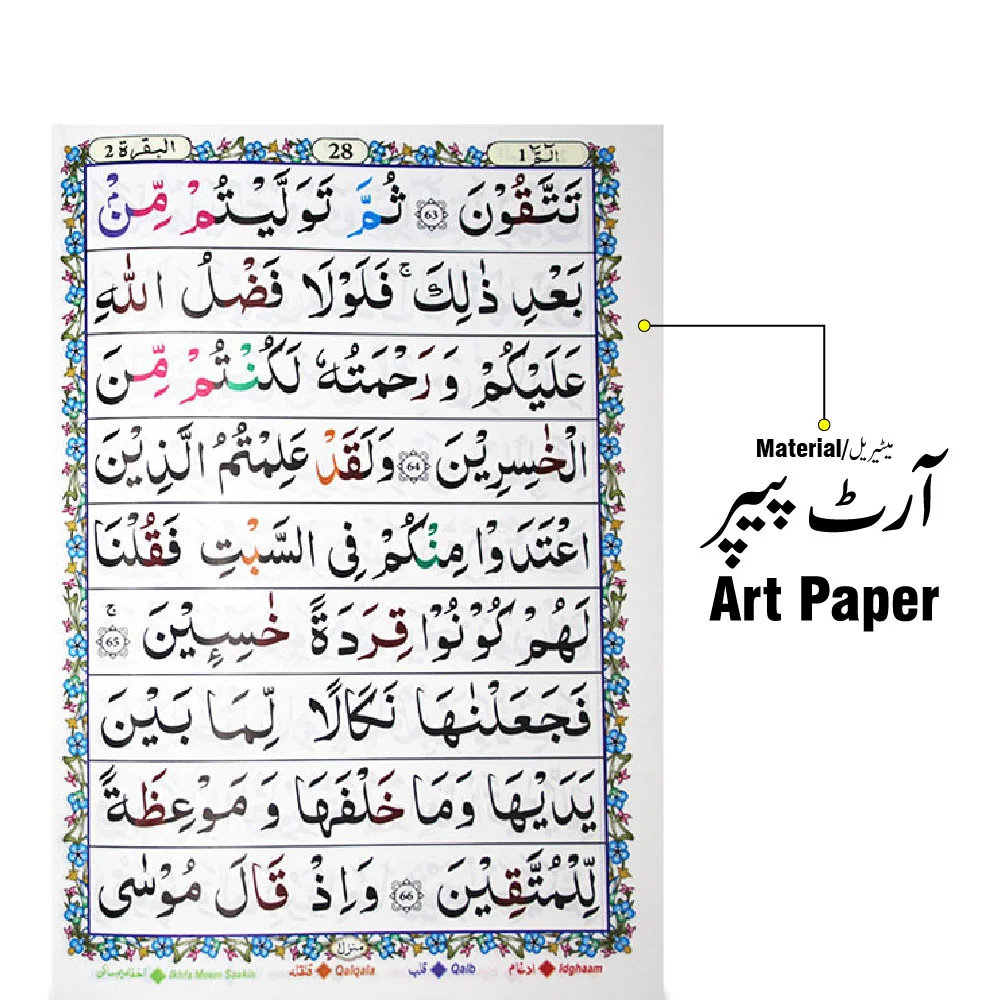 الٓمّٓ 1
28
البقرة 2
تَتَّقُوْنَ 63 ثُمَّ تَوَلَّيْتُمْ مِّنْۢ
بَعْدِ ذٰلِكَ ۚ فَلَوْلَا فَضْلُ اللّٰهِ
عَلَيْكُمْ وَرَحْمَتُهٗ لَكُنْتُمْ مِّنَ
الْخٰسِرِيْنَ 64 وَلَقَدْ عَلِمْتُمُ الَّذِيْنَ
اعْتَدَوْا مِنْكُمْ فِى السَّبْتِ فَقُلْنَا
لَهُمْ كُوْنُوْا قِرَدَةً خٰسِـِٕيْنَ ۚ 65
فَجَعَلْنٰهَا نَكَالًا لِّمَا بَيْنَ
يَدَيْهَا وَمَا خَلْفَهَا وَ مَوْعِظَةً
لِّلْمُتَّقِيْنَ 66 وَاِذْ قَالَ مُوْسٰى
منزل ۱
Idghaam ادغام Qalb قلب Qalqala قلقله Ikhfa Meem Saakin
Material/میٹیریل
آرٹ پیپر
Art Paper